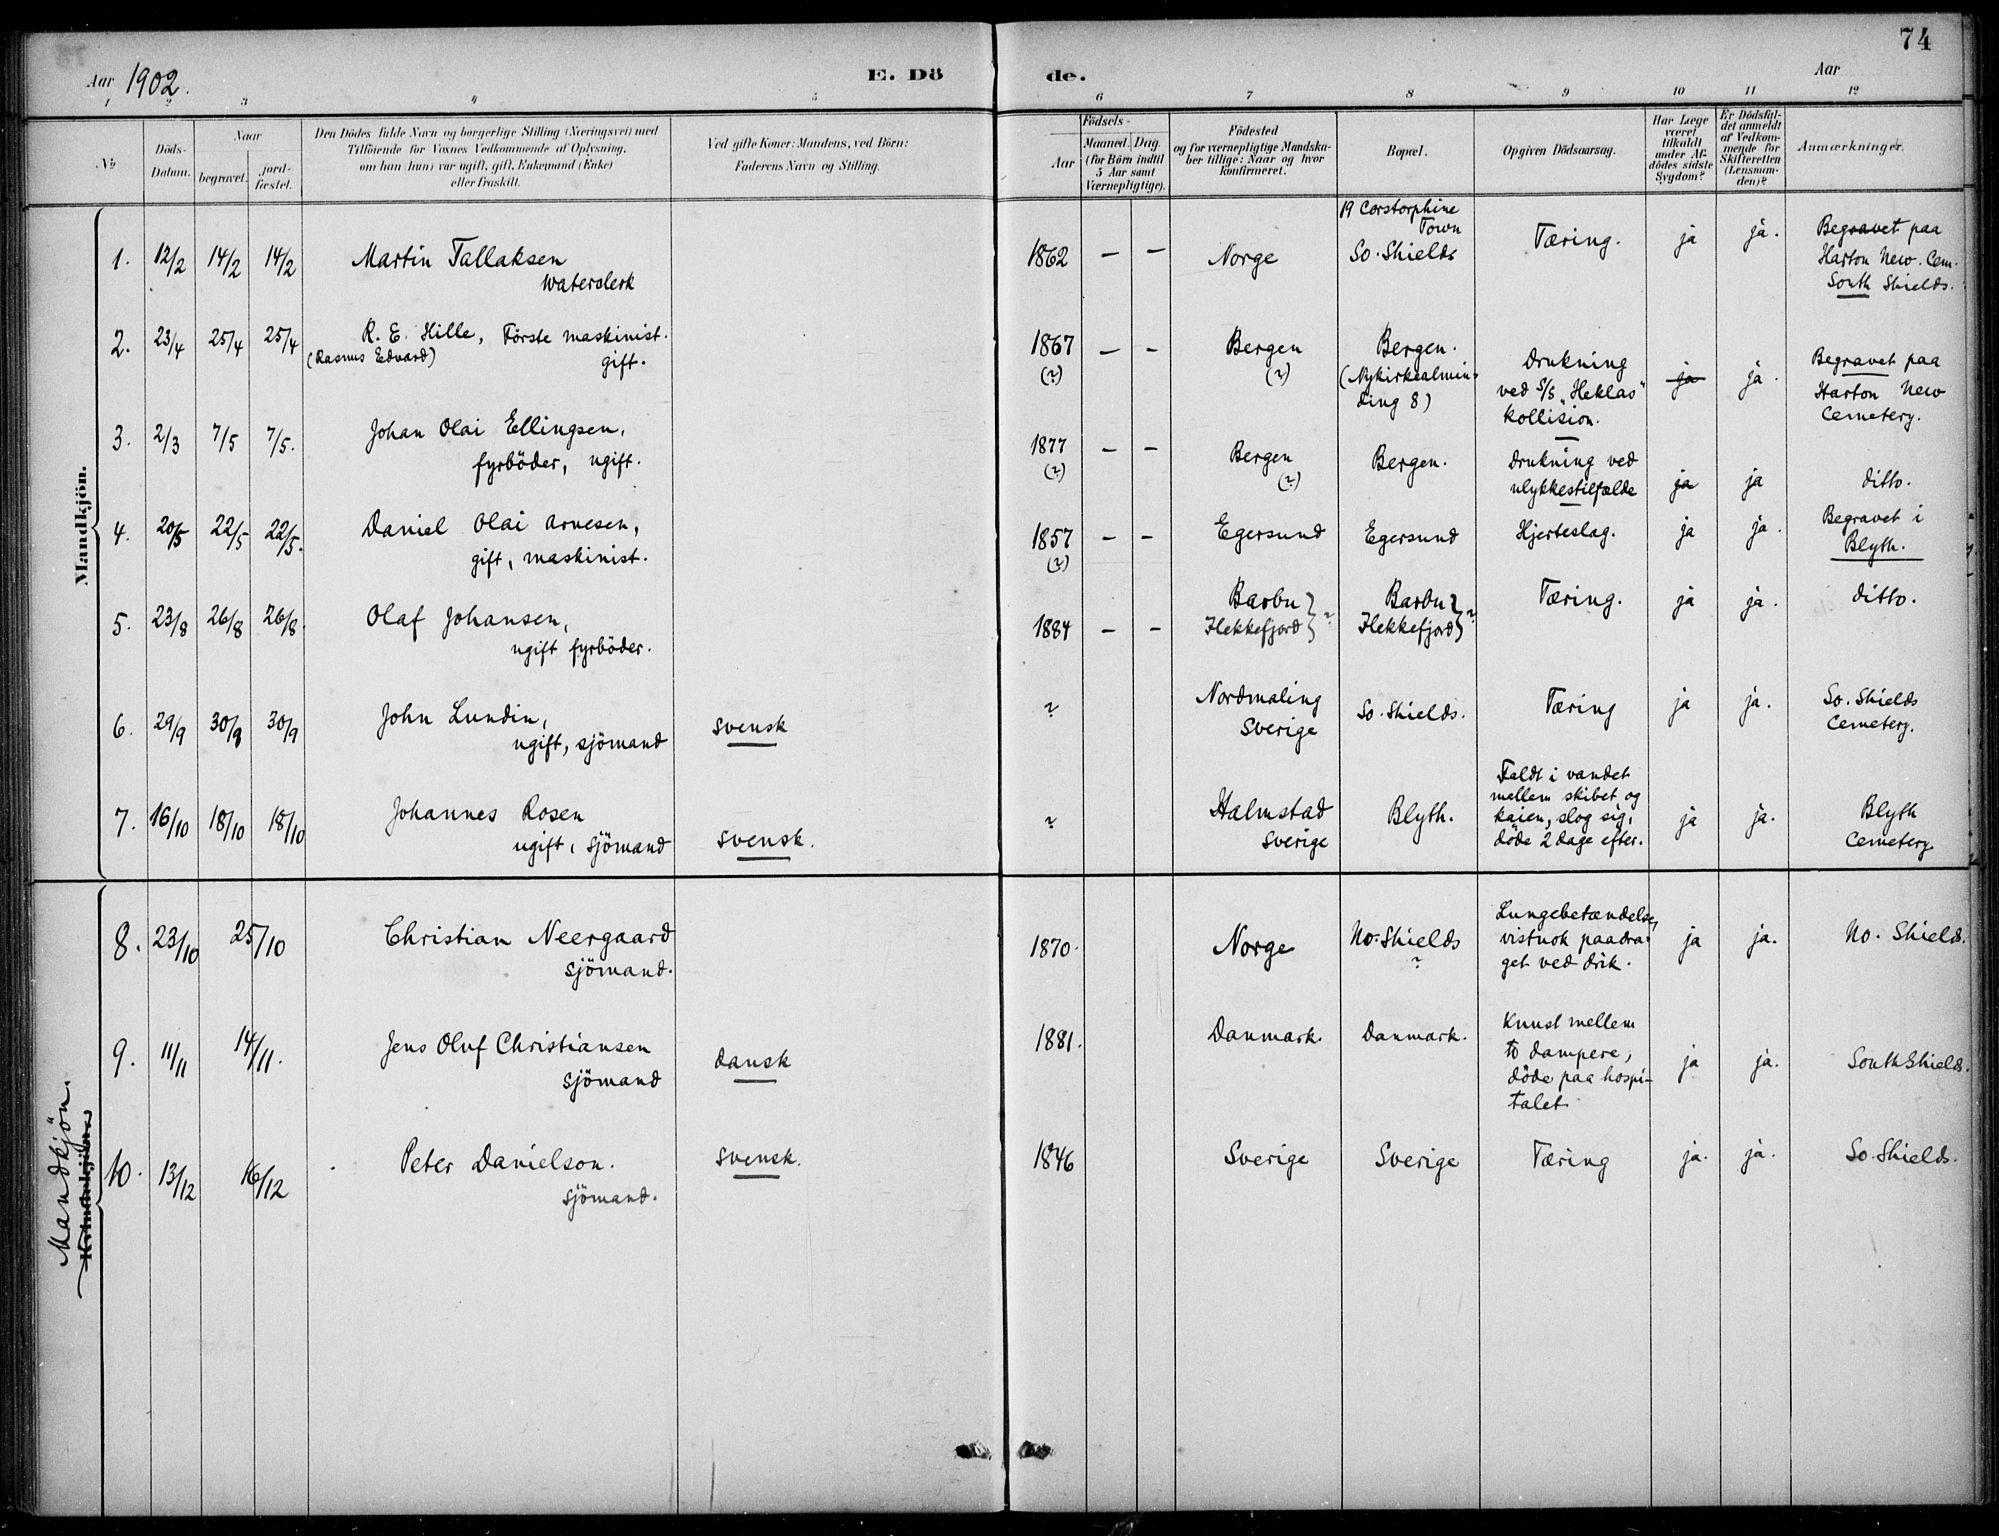 74
Aar 1902.
E. Dö
de.
Aar
1 2 3 4 5 6 7 8 9 10 11 12
No
Döds-
Datum.
Naar
begravet.
jord-
fæstet.
Den Dödes fulde Navn og borgerlige Stilling (Næringsvei) med
Tilföiende for Voxnes Vedkommende af Oplysning,
om han (hun) var ugift, gift, Enkemand (Enke)
eller fraskilt.
Ved gifte Koner: Mandens, ved Börn:
Faderens Navn og Stilling.
Födsels-
Aar
Maaned. Dag.
(for Börn indtil
5 Aar samt
Værnepligtige).
Födested
og for værnepligtige Mandska-
ber tillige: Naar og hvor
konfirmeret.
Bopæl.
Opgiven Dödsaarsag.
Har Læge
været
tilkaldt
under Af-
dödes sidste
Sygdom?
Er Dödsfal-
det anmeldt
af Vedkom-
mende for
Skifteretten
(Lensman-
den)?
Anmærkninger.
Mandkjön.
1. 12/2 14/2 14/2 Martin Tallaksen
waterclerk
1862 — — Norge
19 Corstorphine
Town
So. Shields
Tæring. ja ja.
Begravet paa
Harton New. Cem.
South Shields.
2. 23/4 25/4 25/4 R. E. Hille, Förste maskinist.
(Rasmus Edvard) gift.
1867 — —
(?)
Bergen
(?)
Bergen.
(Nykirkealmin-
ding 8)
Drukning
ved S/S "Heklas"
kollision.
ja ja.
Begravet paa
Harton New
Cemetery.
3. 2/3 7/5 7/5. Johan Olai Ellingsen,
fyrböder, ugift.
1877 — —
(?)
Bergen
(?)
Bergen.
Drukning ved
ulykkestilfælde
ja ja ditto.
4. 20/5 22/5 22/5. Daniel Olai Arnesen,
gift, maskinist.
1857 — —
(?)
Egersund Egersund Hjerteslag. ja ja.
Begravet i
Blyth.
5. 23/8 26/8 26/8. Olaf Johansen,
ugift fyrböder.
1884 — —
Barbu
Flekkefjord } ?
Barbu
Flekkefjord } ?
Tæring. ja ja. ditto.
6. 29/9 30/9 30/9 John Lundin,
ugift, sjömand
svensk
?
Nordmaling
Sverige
So. Shields. Tæring ja ja.
So. Shields
Cemetery.
7. 16/10 18/10 18/10 Johannes Rosen
ugift, sjömand
svensk.
?
Halmstad
Sverige
Blyth.
Faldt i vandet
mellem skibet og
kaien, slog sig,
döde 2 dage efter.
ja ja.
Blyth
Cemetery
Mandkjön
Kvindekjön.
8. 23/10 25/10 Christian Neergaard
sjömand.
1870. Norge
No. Shields
?
Lungebetændelse,
vistnok paadra-
get ved drik.
ja ja. No. Shields.
9. 11/11 14/11. Jens Oluf Christiansen
sjömand
dansk
1881. Danmark. Danmark.
Knust mellem
to dampere,
döde paa hospi-
talet
ja ja. South Shields.
10. 13/12 16/12 Peter Danielson.
sjömand.
svensk.
1846 Sverige Sverige Tæring ja. ja. So. Shields.